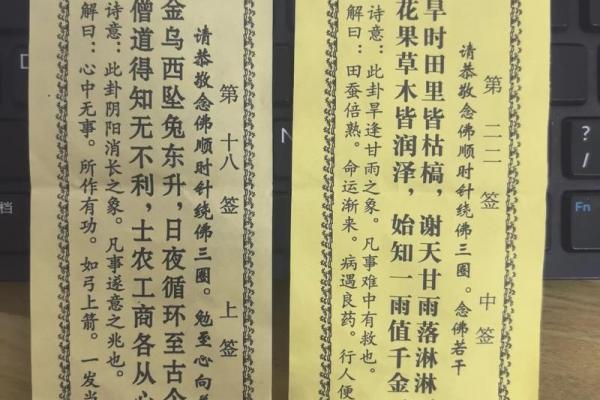 第十八签 上签
请恭敬念佛顺时针绕佛三圈。勉至心向
金乌西坠兔东升，日夜循环至古今
僧道得知无不利，士农工商各从心
诗意：此卦阴阳消长之象。凡事遂意之兆也。
解曰：心中无事。所作有功。如弓上箭。一发当
第二二签 中签
请恭敬念佛顺时针绕佛三圈。念佛若干
旱时田里皆枯槁，谢天甘雨落淋淋
花果草木皆润泽，始知一雨值千金
诗意：此卦旱逢甘雨之象。凡事难中有救也。
解曰：田蚕倍熟。命运渐来。病遇良药。行人便
档
?
/
Fn